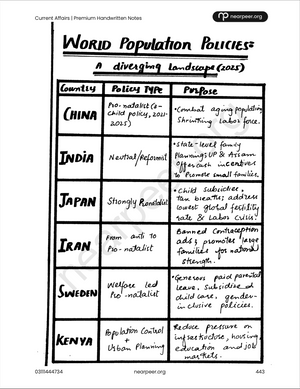 Current Affairs | Premium Handwritten Notes
nearpeer.org
WORLD POPULATION POLICIES:
A diverging landscape (2025)
Country
Policy Type
Purpose
CHINA
Pro-natalist (3-
child policy, 2021-
2025)
• Combat aging population,
Shrinking Labor force.
INDIA
Neutral/Reformist
• State-level family
Planning: UP & Assam
offer cash incentives
to Promote small families.
JAPAN
Strongly Pronatalist
• Child subsidies,
tax breaks; address
lowest global fertility
rate & Labor crisis.
IRAN
From anti to
Pro-natalist
Banned Contraception
ads & promotes large
families for national
strength.
SWEDEN
Welfare led
Pro-natalist
• Generous paid parental
leave, subsidized
child care, gender-
inclusive policies.
KENYA
Population Control
+
Urban Planning
Reduce pressure on
infrastructure, housing,
education and job
markets.
nearpeer.org
0311 444734
nearpeer.org
443